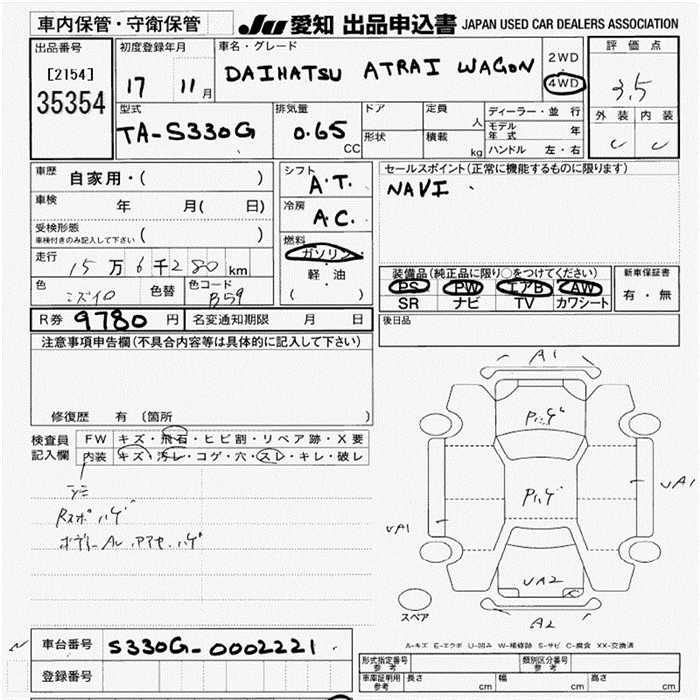 車内保管・守衛保管
JU 愛知 出品申込書 JAPAN USED CAR DEALERS ASSOCIATION
出品番号
[2154]
35354
初度登録年月
17 11月
車名・グレード
DAIHATSU ATRAI WAGON
2WD
4WD
評価点
3.5
外装 内装
C C
型式
TA-S330G
排気量
0.65
CC
ドア
形状
定員 人
積載 kg
ディーラー・並行
モデル年式 年
ハンドル 左・右
車歴 自家用・( )
車検 年 月( 日)
受検形態
車検付きのみ記入して下さい ( )
走行
15万6千280km
色 色替 色コード
B59
シフト
A.T.
冷房
A.C.
燃料
ガソリン
軽油
( )
セールスポイント(正常に機能するものに限ります)
NAVI
装備品(純正品に限り○をつけてください)
PS PW エアB AW
SR ナビ TV カワシート
新車保証書
有・無
R券 9780 円 名変通知期限 月 日
後日品
注意事項申告欄(不具合内容等は具体的に記入して下さい)
修復歴 有(箇所 )
検査員記入欄
FW キズ・飛石・ヒビ割・リペア跡・X要
内装 キズ・汚レ・コゲ・穴・スレ・キレ・破レ
A1
Pハゲ
Pハゲ
UA1
UA1
UA2
A2
スペア
A-キズ E-エクボ U-凹み W-補修跡 S-サビ C-腐食 XX-交換済
車台番号 S330G-0002221
登録番号
形式指定番号 参考
類別区分番号 参考
車庫証明用 参考 長さ cm 幅 cm 高さ cm